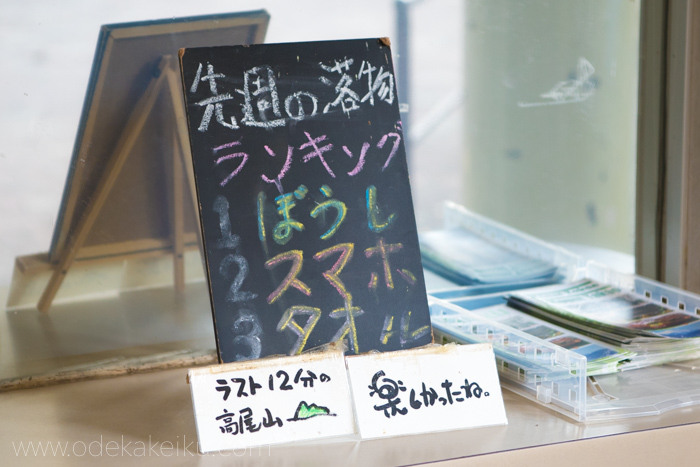 先週の落物
ランキング
1 ぼうし
2 スマホ
3 タオル
ラスト12分の
高尾山
楽しかったね。
www.odekakeiku.com